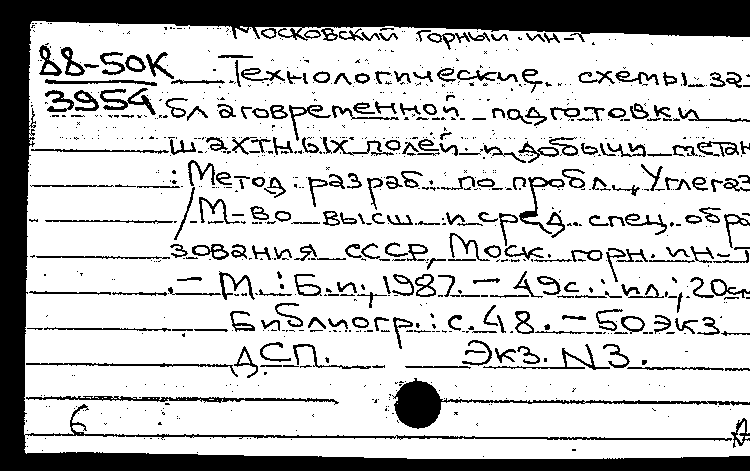 Московский горный ин-т.
88-50К Технологические схемы за-
3954 благовременной подготовки
шахтных полей и добычи метан
: Метод. разраб. по пробл. „Углегаз
/ М-во высш. и сред. спец. обра
зования СССР, Моск. горн. ин-т
.— М. : Б.и., 1987. — 49с. : ил.; 20см
Библиогр.: с. 48. — 50 экз.
ДСП. Экз. N3.
6